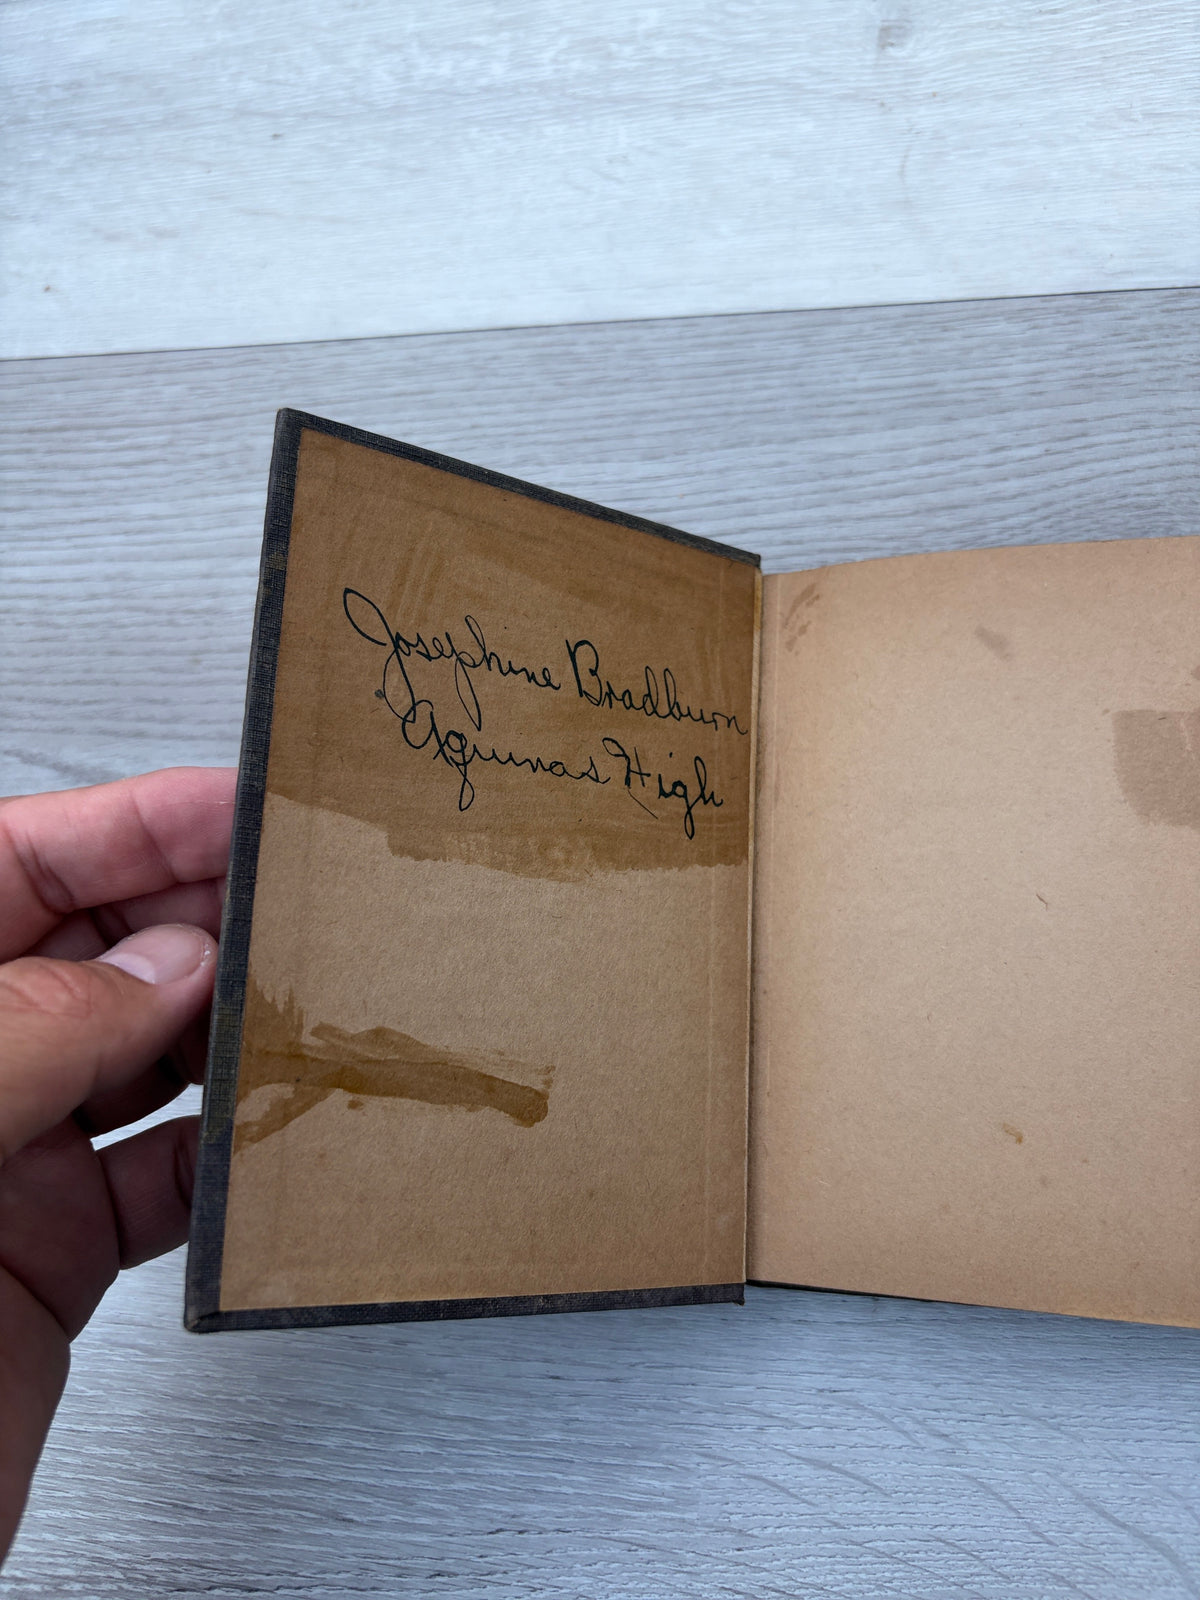 Josephine Bradburn
Aquinas High